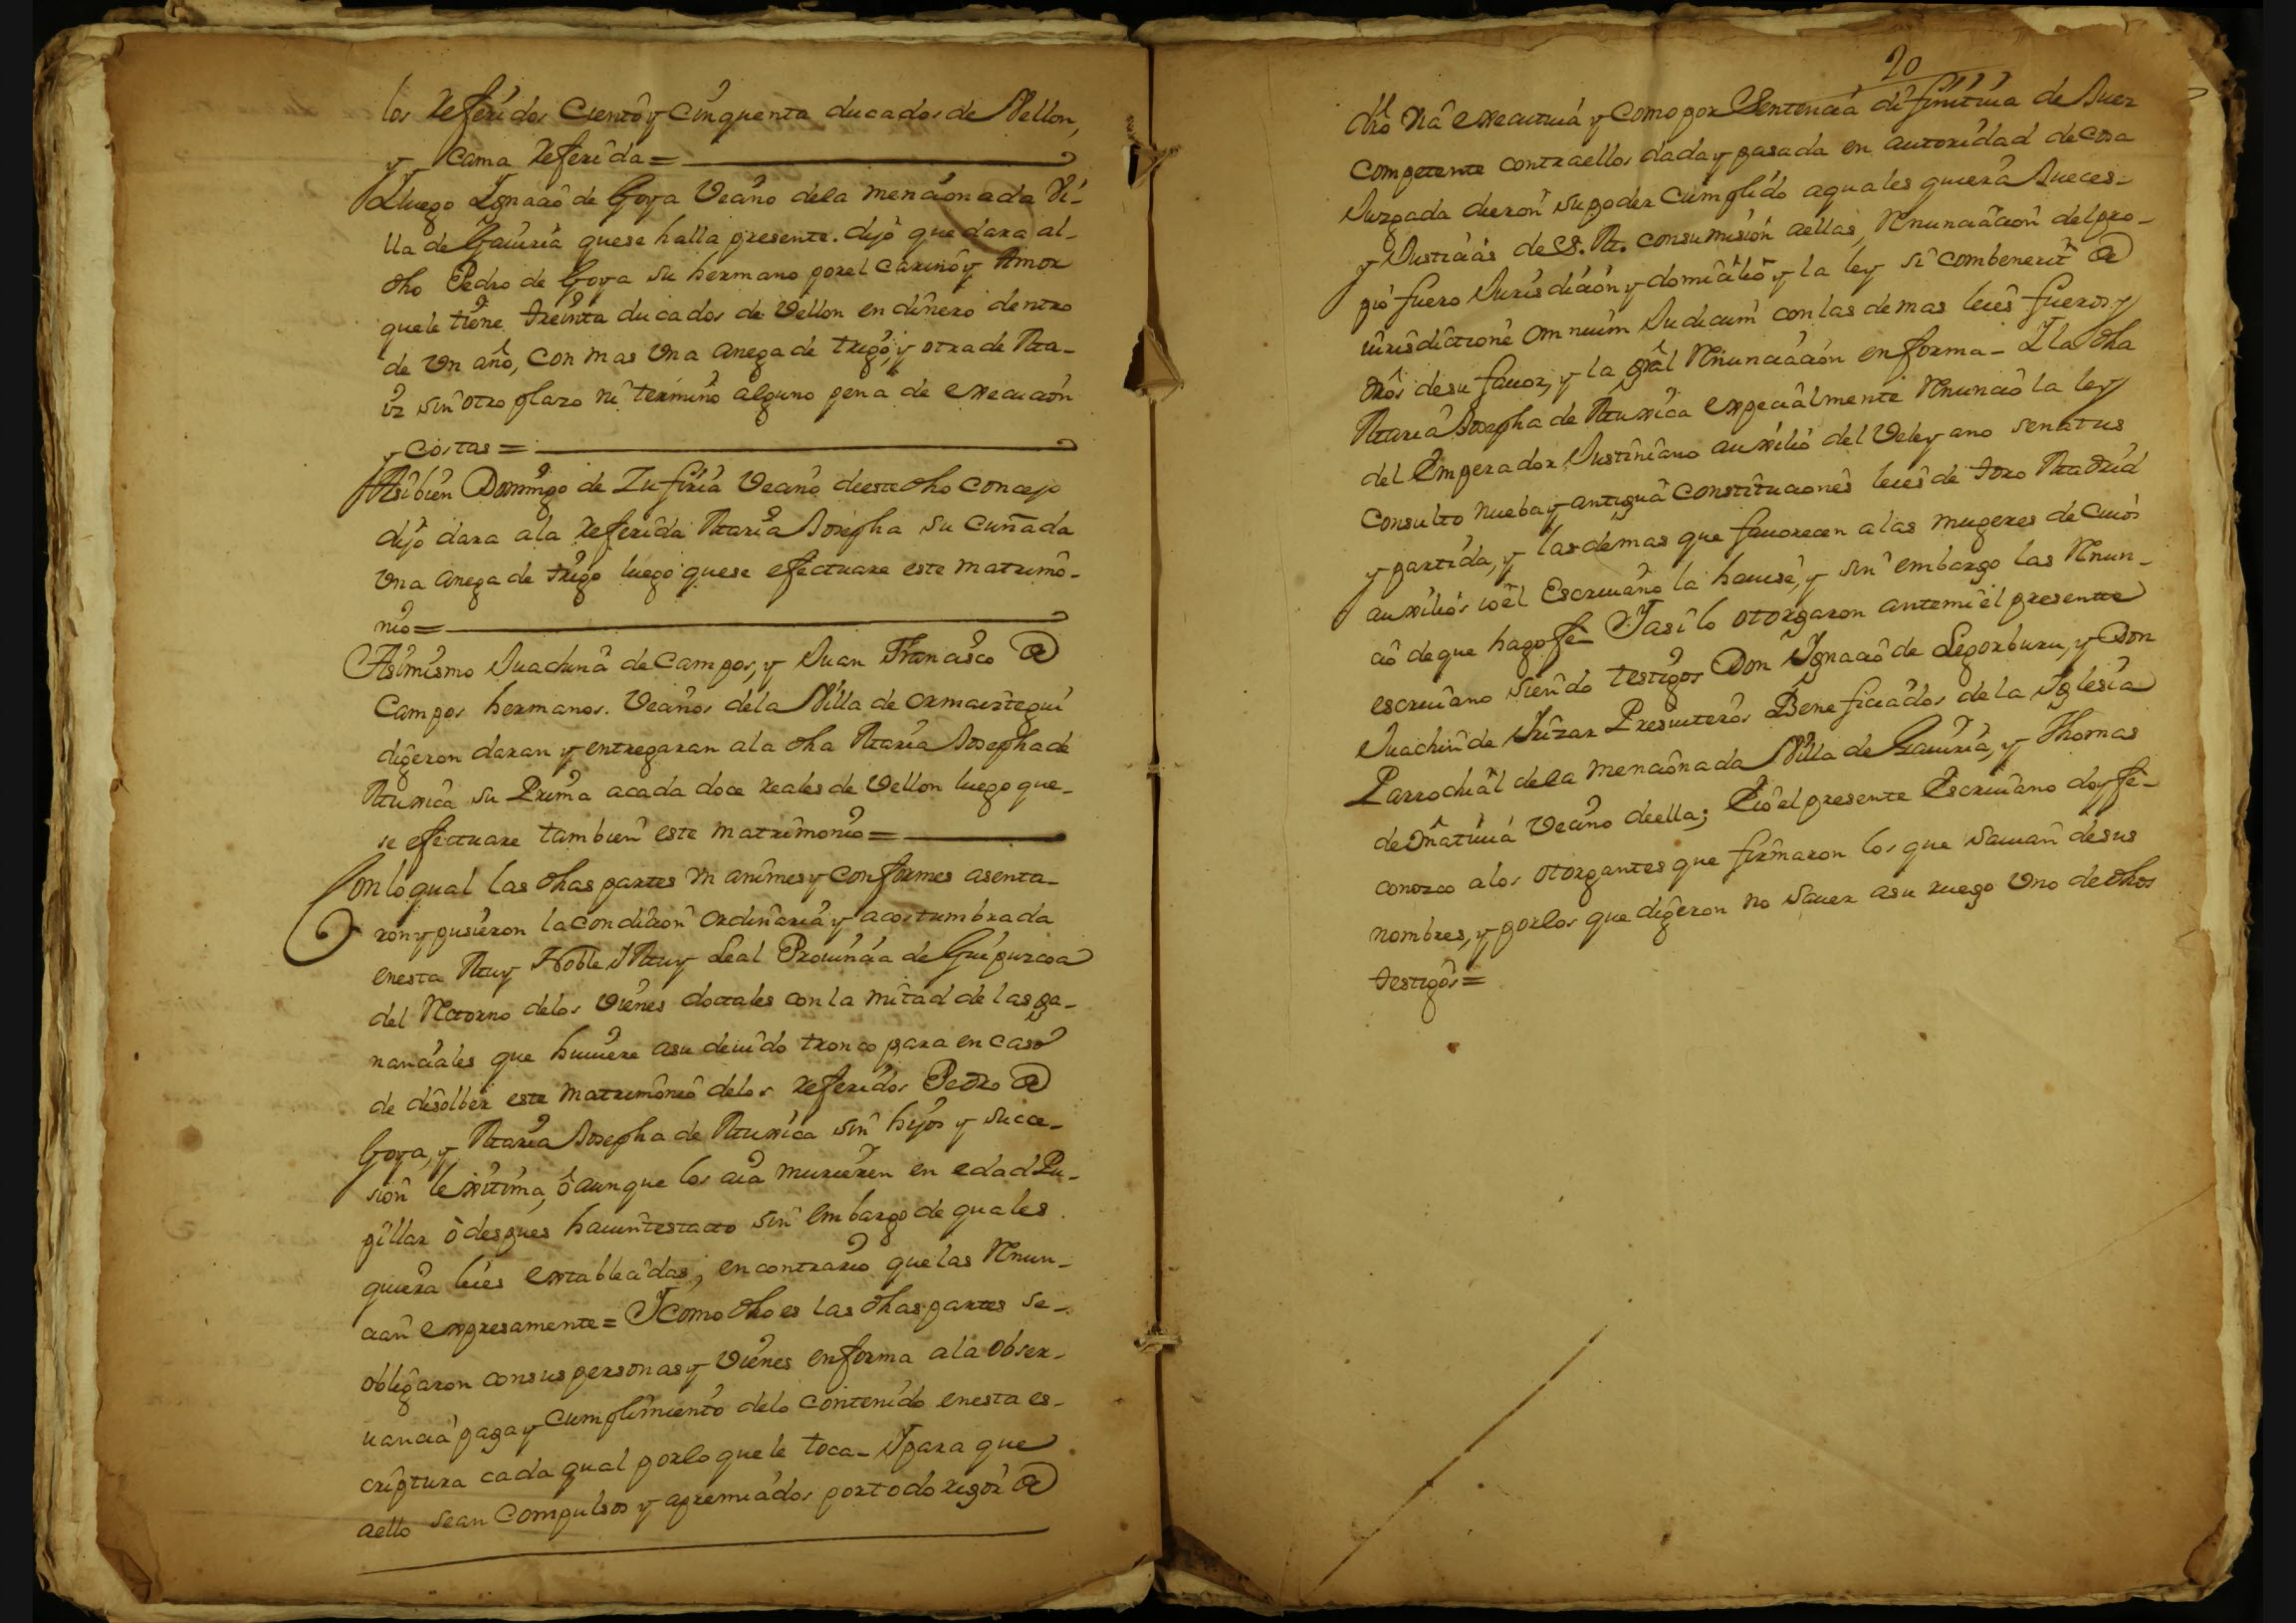 los referidos Ciento y Cinquenta ducados de Vellon,
y cama referida=
Y luego Ignacio de Goya Vecino de la mencionada Vi-
lla de Gauiria que se halla presente. dijo que dara al
dho Pedro de Goya su hermano por el cariño y Amor
que le tiene treinta ducados de Vellon en dinero dentro
de Vn año, con mas Vna anega de trigo, y otra de Ma-
iz sin otro plazo ni termino alguno pena de execucion
y costas=
Asibien Domingo de Zufiria Vecino de este dho Concejo
dijo dara a la referida Maria Josepha su Cuñada
Vna anega de trigo luego que se efectuare este matrimo-
nio=
Asimismo Juachina de Campos, y Juan Francisco de
Campos hermanos. Vecinos de la Villa de Ormaiztegui
digeron daran y entregaran a la dha Maria Josepha de
Muxica su Prima a cada doce reales de Vellon luego que-
se efectuare tambien este matrimonio=
Con lo qual las dhas partes Vnanimes y Conformes asenta-
ron y pusieron la condicion ordinaria y acostumbrada
en esta Muy Noble Y Muy Leal Prouincia de Guipuzcoa
del Retorno de los Vienes doctales con la mitad de las ga-
nanciales que huuiere a su deuido tronco para en caso
de disolber este matrimonio de los referidos Pedro de
Goya, y Maria Josepha de Muxica sin hijos y succe-
sion lexitima, ô aunque los aia murieren en edad Pu-
pillar ô despues hauintestacto sin embargo de quales
quiera leies extablecidas, en contrario que las Renun-
cian expresamente= Y como dho es las dhas partes se-
obligaron con sus personas y Vienes en forma a la obser-
uancia paga y cumplimiento de lo contenido en esta es-
criptura cada qual por lo que le toca- Y para que
a ello sean compulsos y apremiados por todo rigor de
20
dro Via executiua y como por Sentencia difinitiua de Juez
competente contra ellos dada y pasada en autoridad de cosa
Juzgada dieron su poder cumplido a quales quiera Jueces-
y Justicias de S. M. con sumision a ellas, Renunciacion del pro-
pio fuero Jurisdicion y domicilio y la ley si combenerit de
iurisdictione omnuim Judicum con las demas leies fueros y
dros de su fauor, y la gral Renunciacion en forma- Y la dha
Maria Josepha de Muxica expecialmente Renuncio la ley
del Emperador Justiniano auxilio del Veleyano senatus
consulto nueba y antigua constituciones leies de toro Madrid
y partida, y las demas que fauorecen a las mugeres de cuios
auxilios io el Escriuano la hauise, y sin embargo las Renun-
cio de que hago fe- Y asi lo otorgaron ante mi el presente
escriuano siendo testigos Don Ignacio de Legorburu, y Don
Juachin de Irizar Presuiteros Beneficiados de la Yglesia
Parrochial de la mencionada Villa de Gauiria, y Thomas
de Oñatiuia Vecino de ella; E io el presente Escriuano doy fe-
conozco a los otorgantes que firmaron los que sauian de sus
nombres, y por los que digeron no sauer a su ruego Vno de dhos
testigos=